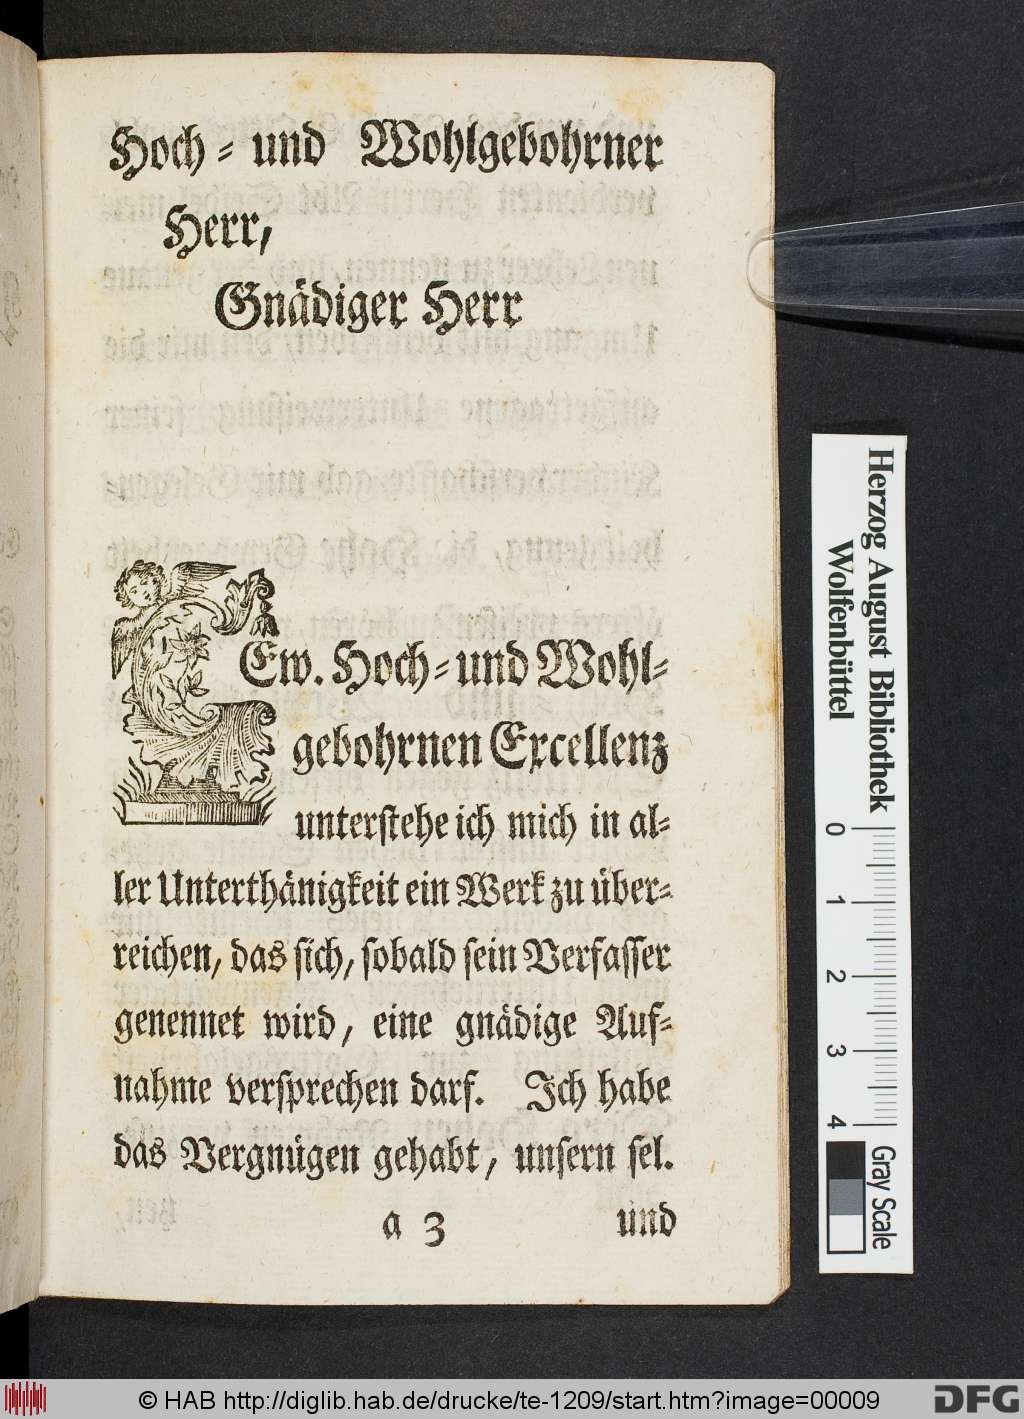 Hoch- und Wohlgebohrner
Herr,
Gnädiger Herr
Ew. Hoch- und Wohl-
gebohrnen Excellenz
unterstehe ich mich in al-
ler Unterthänigkeit ein Werk zu über-
reichen, das sich, sobald sein Verfasser
genennet wird, eine gnädige Auf-
nahme versprechen darf. Ich habe
das Vergnügen gehabt, unsern sel.
a 3
und
Herzog August Bibliothek
Wolfenbüttel
0 1 2 3 4
Gray Scale
© HAB http://diglib.hab.de/drucke/te-1209/start.htm?image=00009
DFG